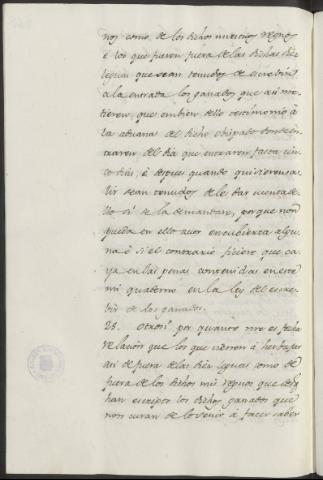 nos como de los dichos nuestros regnos
é los que fueren fuera de las dichas diez
leguas que sean tenudos de escrebir
a la entrada los ganados que asi me-
tieren, que embien dello testimonio à
la aduana del dicho obispado donde en-
traren del dia que entraren fasta cin-
co dias, é despues quando quisieren sa-
lir sean tenudos de le dar cuenta de-
llo si se la demandare, porque non
pueda en ello aver encubierta algu-
na é si el contrario ficiere que ca-
ya en las penas contenidas en este
mi quaderno en la ley del escre-
bir de los ganados.
28. Otrosi por quanto me es fecha
relacion que los que vienen à herbajar
asi de fuera de las diez leguas como de
fuera de los dichos mis regnos que
han escripto los dichos ganados que
non curan de lo venir à facer saber